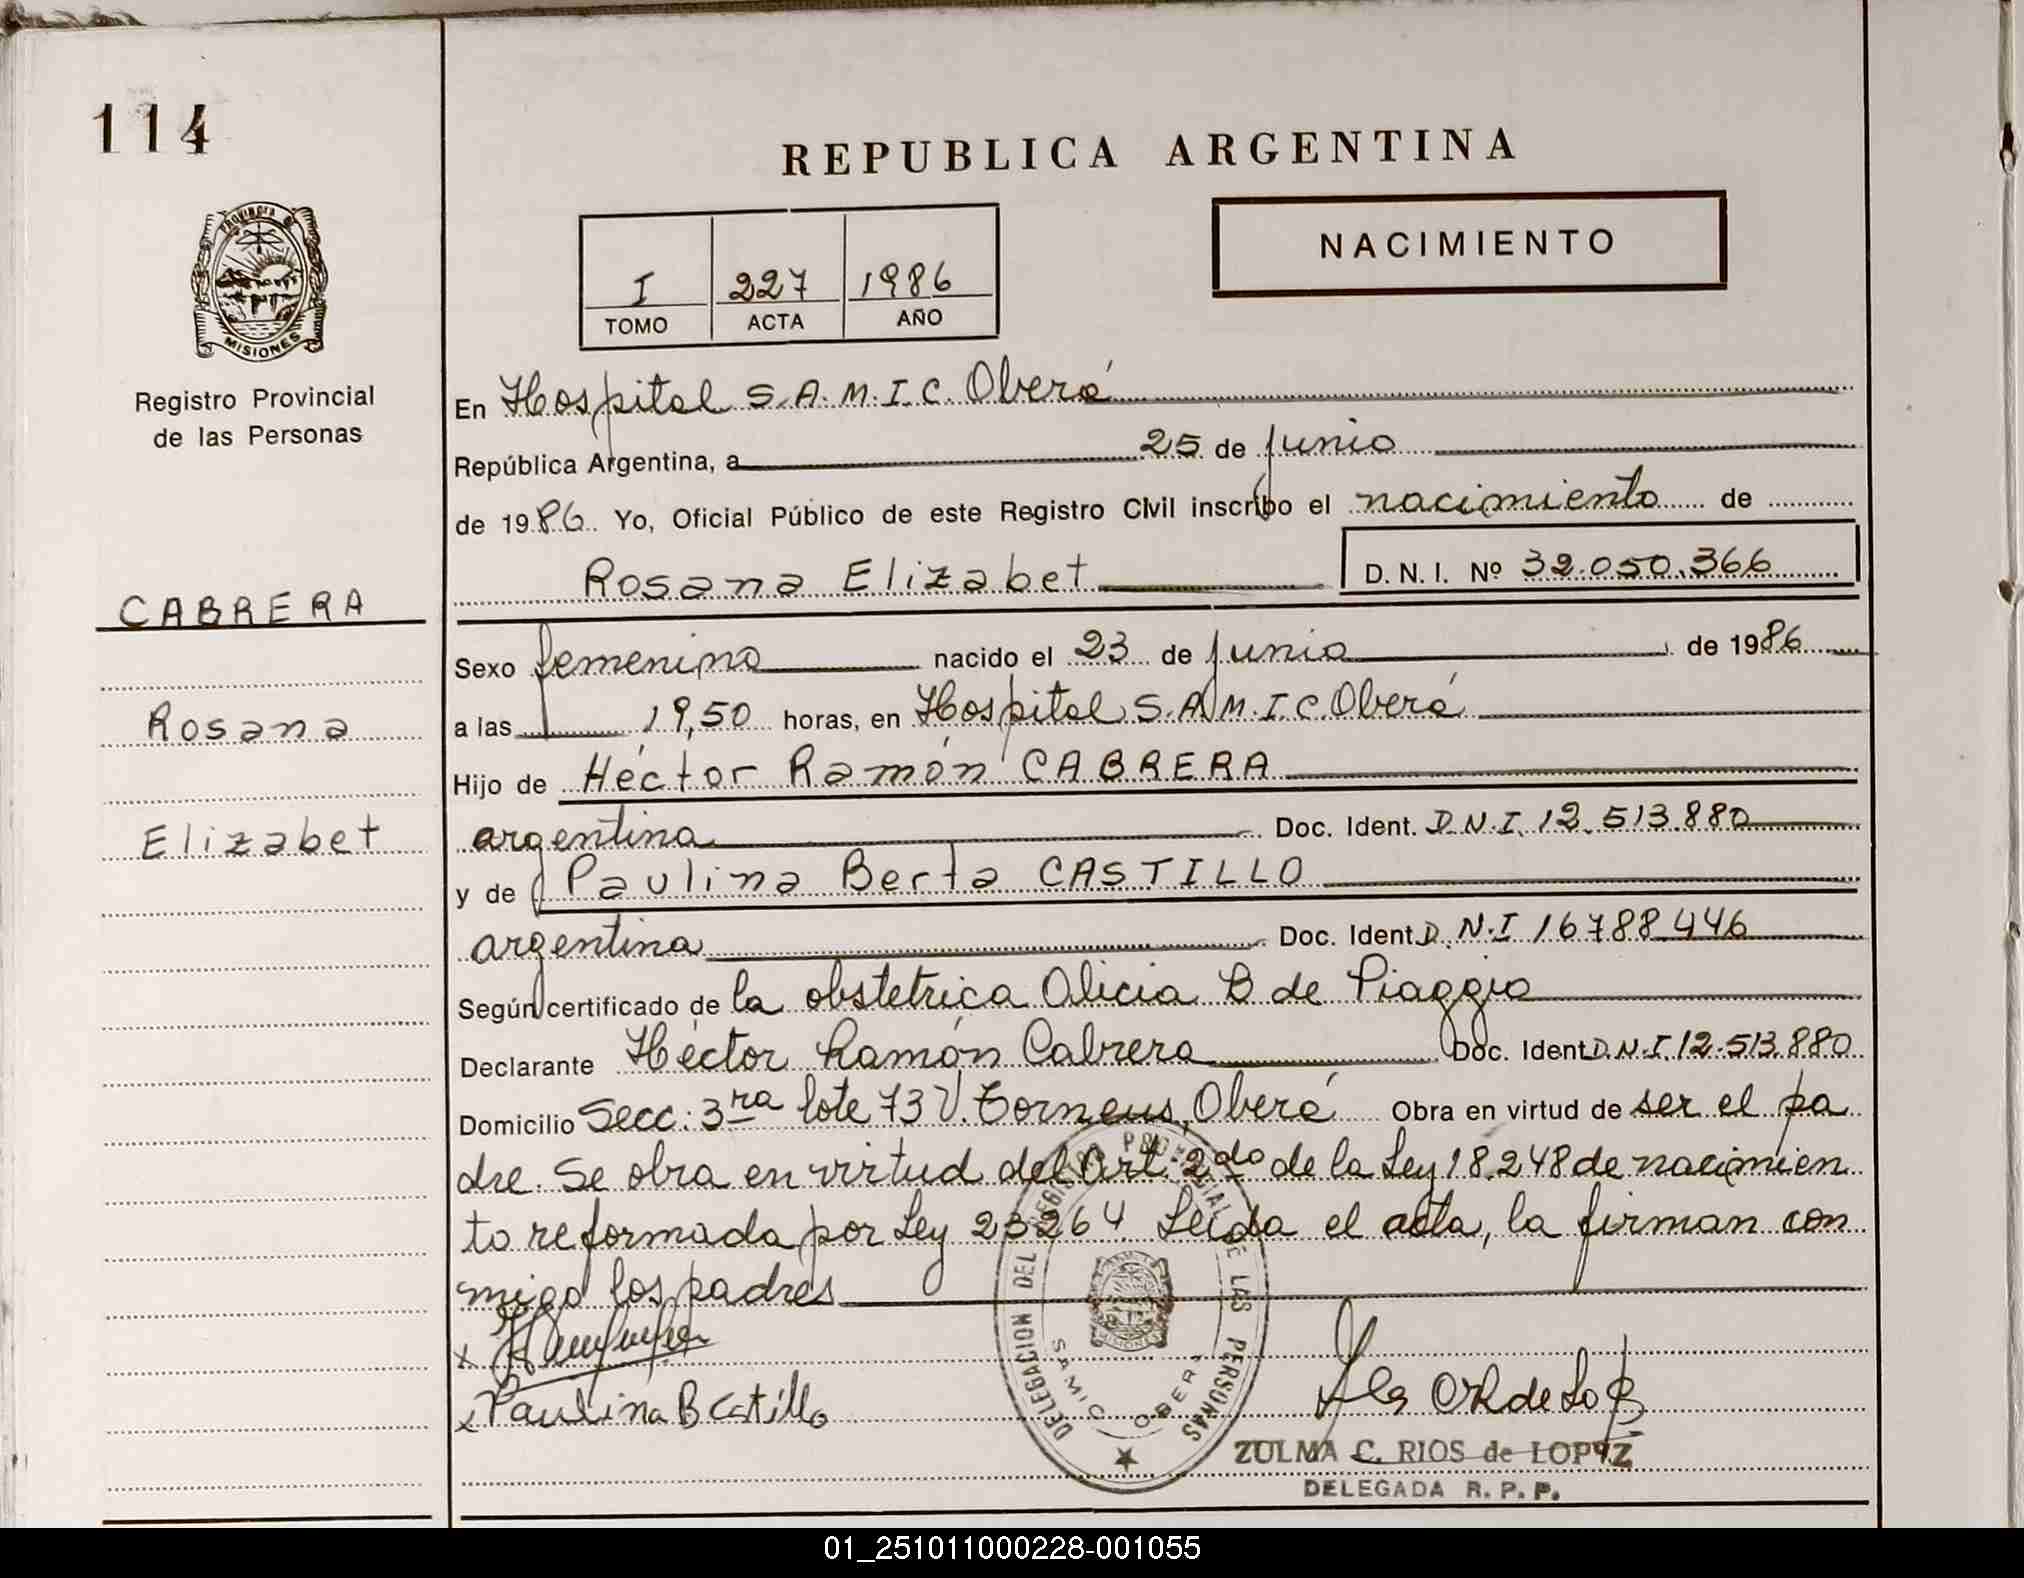 114
REPUBLICA ARGENTINA
NACIMIENTO
I 227 1986
TOMO ACTA AÑO
PROVINCIA DE
MISIONES
Registro Provincial
de las Personas
CABRERA
Rosana
Elizabet
En Hospital S.A.M.I.C. Oberá
República Argentina, a 25 de junio
de 1986. Yo, Oficial Público de este Registro Civil inscribo el nacimiento de
Rosana Elizabet D. N. I. Nº 32.050.366
Sexo femenino nacido el 23 de junio de 1986
a las 19,50 horas, en Hospital S.A.M.I.C. Oberá
Hijo de Héctor Ramón CABRERA
argentina Doc. Ident. D.N.I. 12.513.880
y de Paulina Berta CASTILLO
argentina Doc. Ident. D.N.I 16788446
Según certificado de la obstetrica Alicia B de Piaggio
Declarante Héctor Ramón Cabrera Doc. Ident. D.N.I. 12.513.880
Domicilio Secc: 3ra lote 73 V. Torneus, Oberá Obra en virtud de ser el pa
dre. Se obra en virtud del Art. 2do de la Ley 18.248 de nacimien
to reformada por Ley 23264. Leída el acta, la firman con
migo los padres
x
x Paulina B Castillo
DELEGACION DEL REGISTRO PROVINCIAL DE LAS PERSONAS
SAMIC OBERA
MISIONES
ZULMA C. RIOS de LOPEZ
DELEGADA R. P. P.
01_251011000228-001055